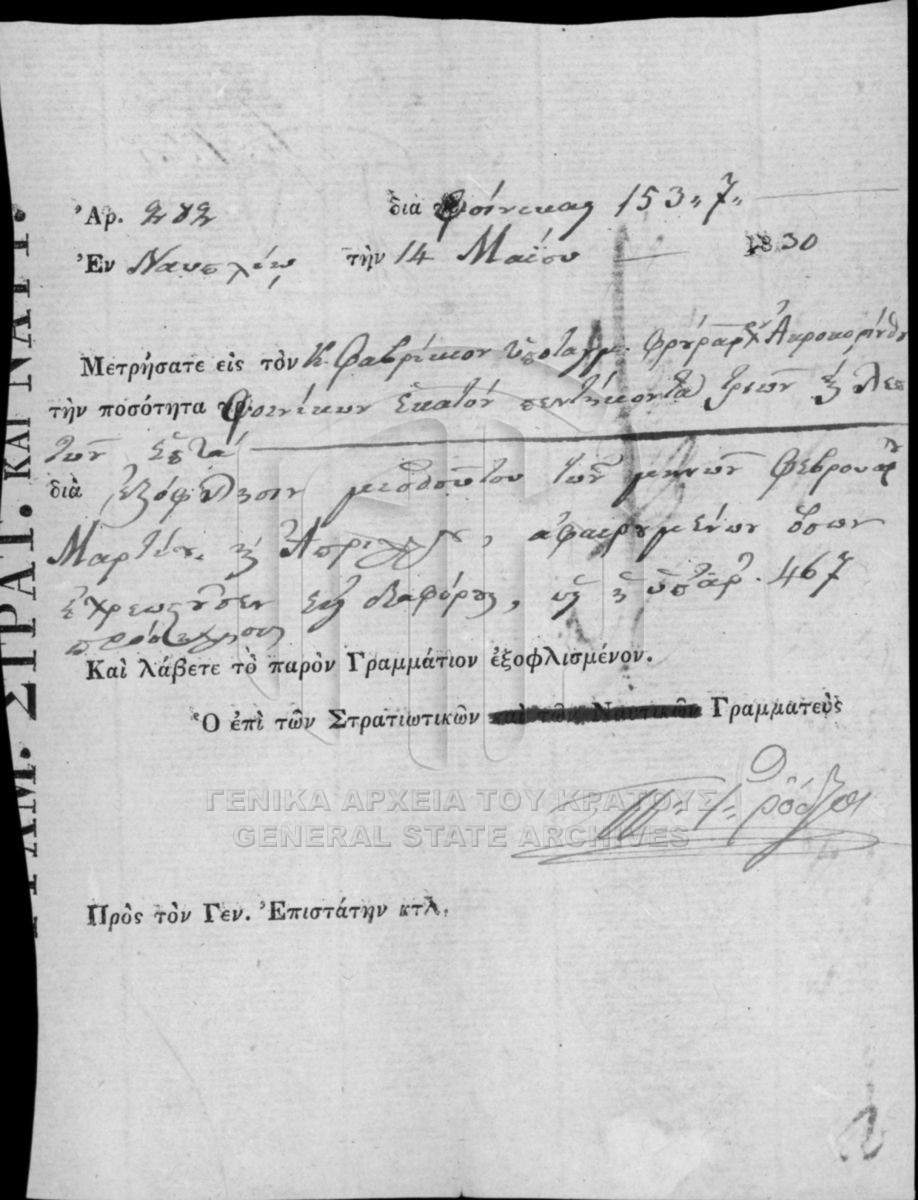 ΓΡΑΜ. ΣΤΡΑΤ. ΚΑΙ ΝΑΥΤ.
Ἀρ. 282 διὰ φοίνικας 153,,7,,
Ἐν Ναυπλίῳ τὴν 14 Μαΐου 1830
Μετρήσατε εἰς τὸν Κ. Φαβρίκιον ὑποταγμ. φρούραρχ Ἀκροκορίνθου
τὴν ποσότητα φοινίκων ἑκατὸν πεντήκοντα τριῶν ϗ λεπ
τῶν ἑπτὰ
διὰ ἐξόφλησιν μισθοῦ του τῶν μηνῶν Φεβρουαρ
Μαρτίου ϗ Ἀπριλλίου, ἀφαιρουμένων ὅσων
ἐχρεωστοῦσεν εἰς διαφόρους, ὡς ἡ ὑπ' ἀρ. 467
Καὶ λάβετε τὸ παρὸν Γραμμάτιον ἐξοφλισμένον.
Ὁ ἐπὶ τῶν Στρατιωτικῶν καὶ τῶν Ναυτικῶν Γραμματεὺς
Π. Γ. Ῥόδιος
Πρὸς τὸν Γεν. Ἐπιστάτην κτλ.
ΓΕΝΙΚΑ ΑΡΧΕΙΑ ΤΟΥ ΚΡΑΤΟΥΣ
GENERAL STATE ARCHIVES